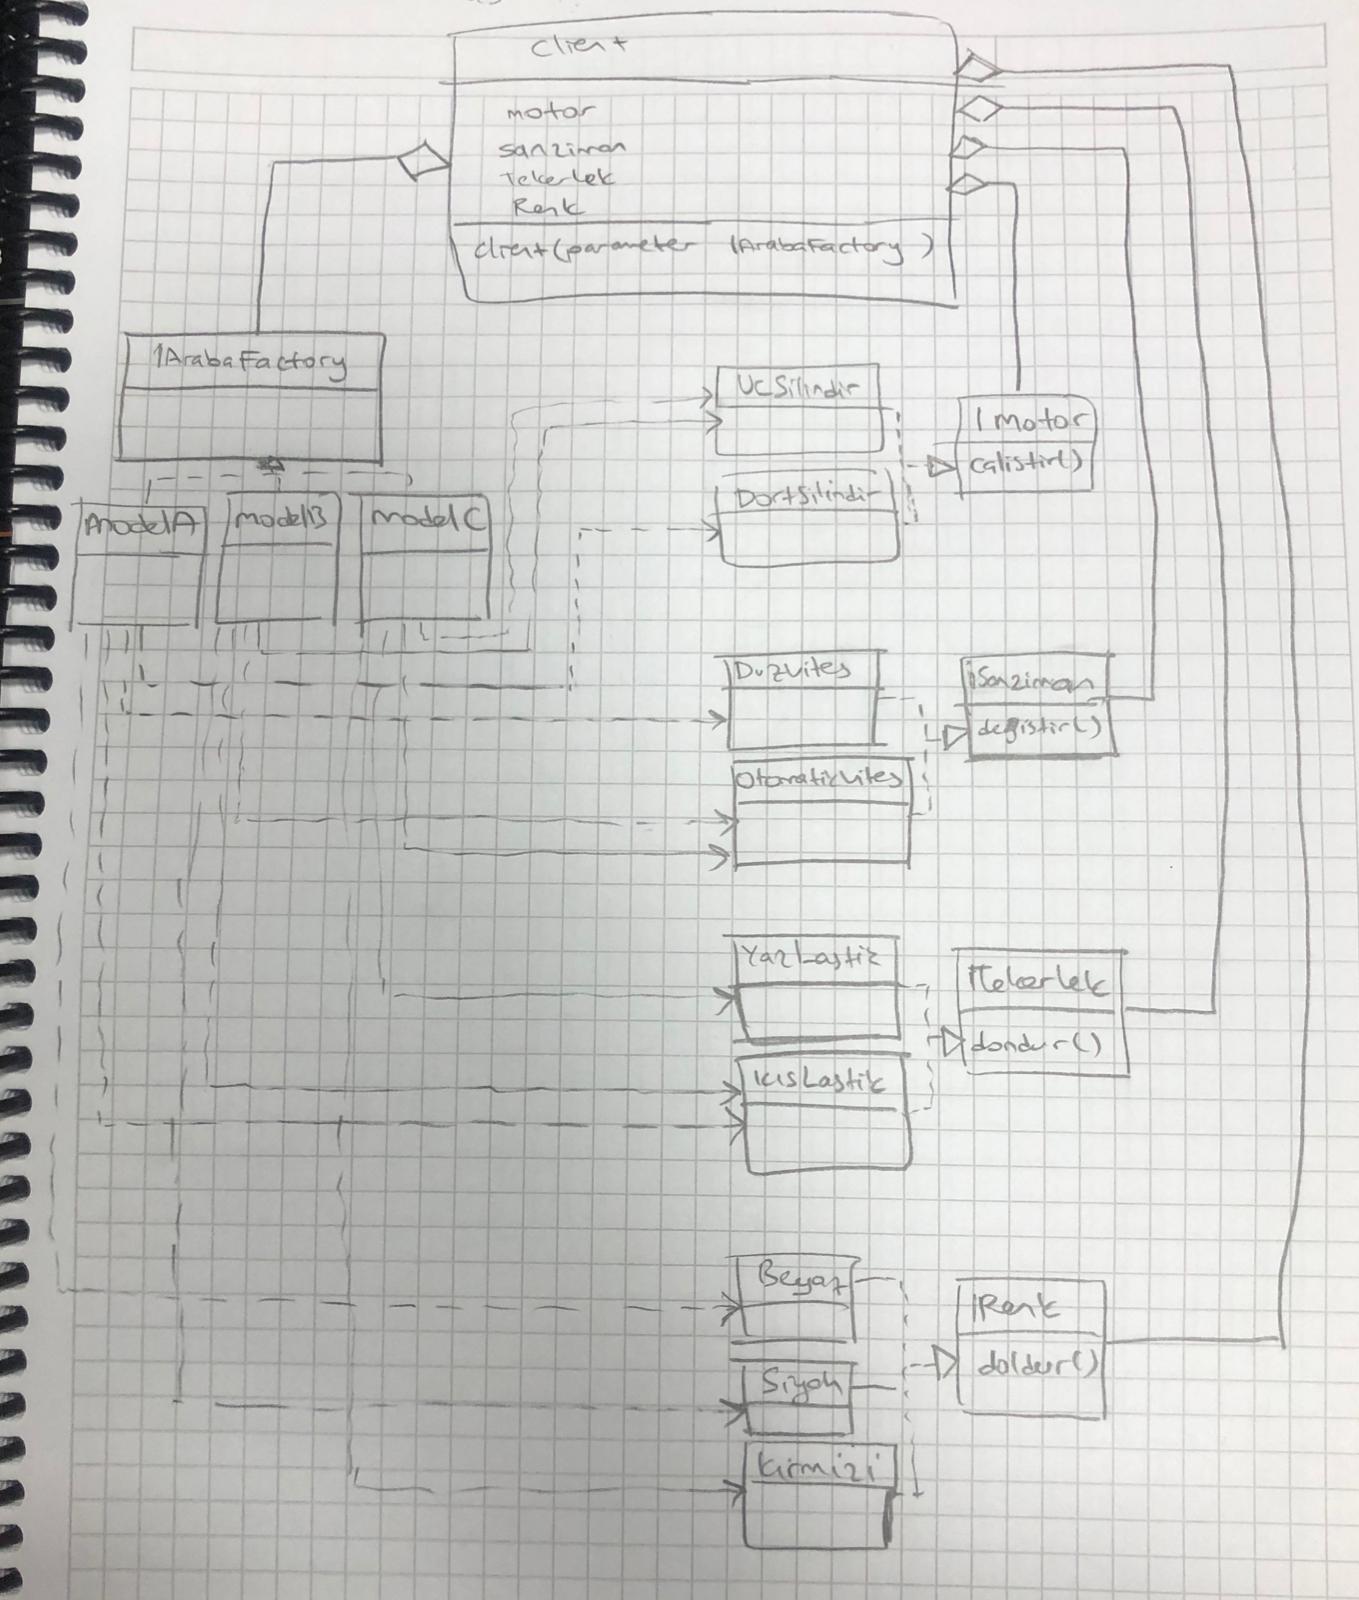 Client
motor
sanziman
Tekerlek
Renk
Client(parameter IArabaFactory)
IArabaFactory
ModelA
ModelB
ModelC
UcSilindir
DortSilindir
IMotor
calistir()
DuzVites
OtomatikVites
ISanziman
degistir()
YazLastik
KisLastik
ITekerlek
dondur()
Beyaz
Siyah
Kirmizi
IRenk
doldur()